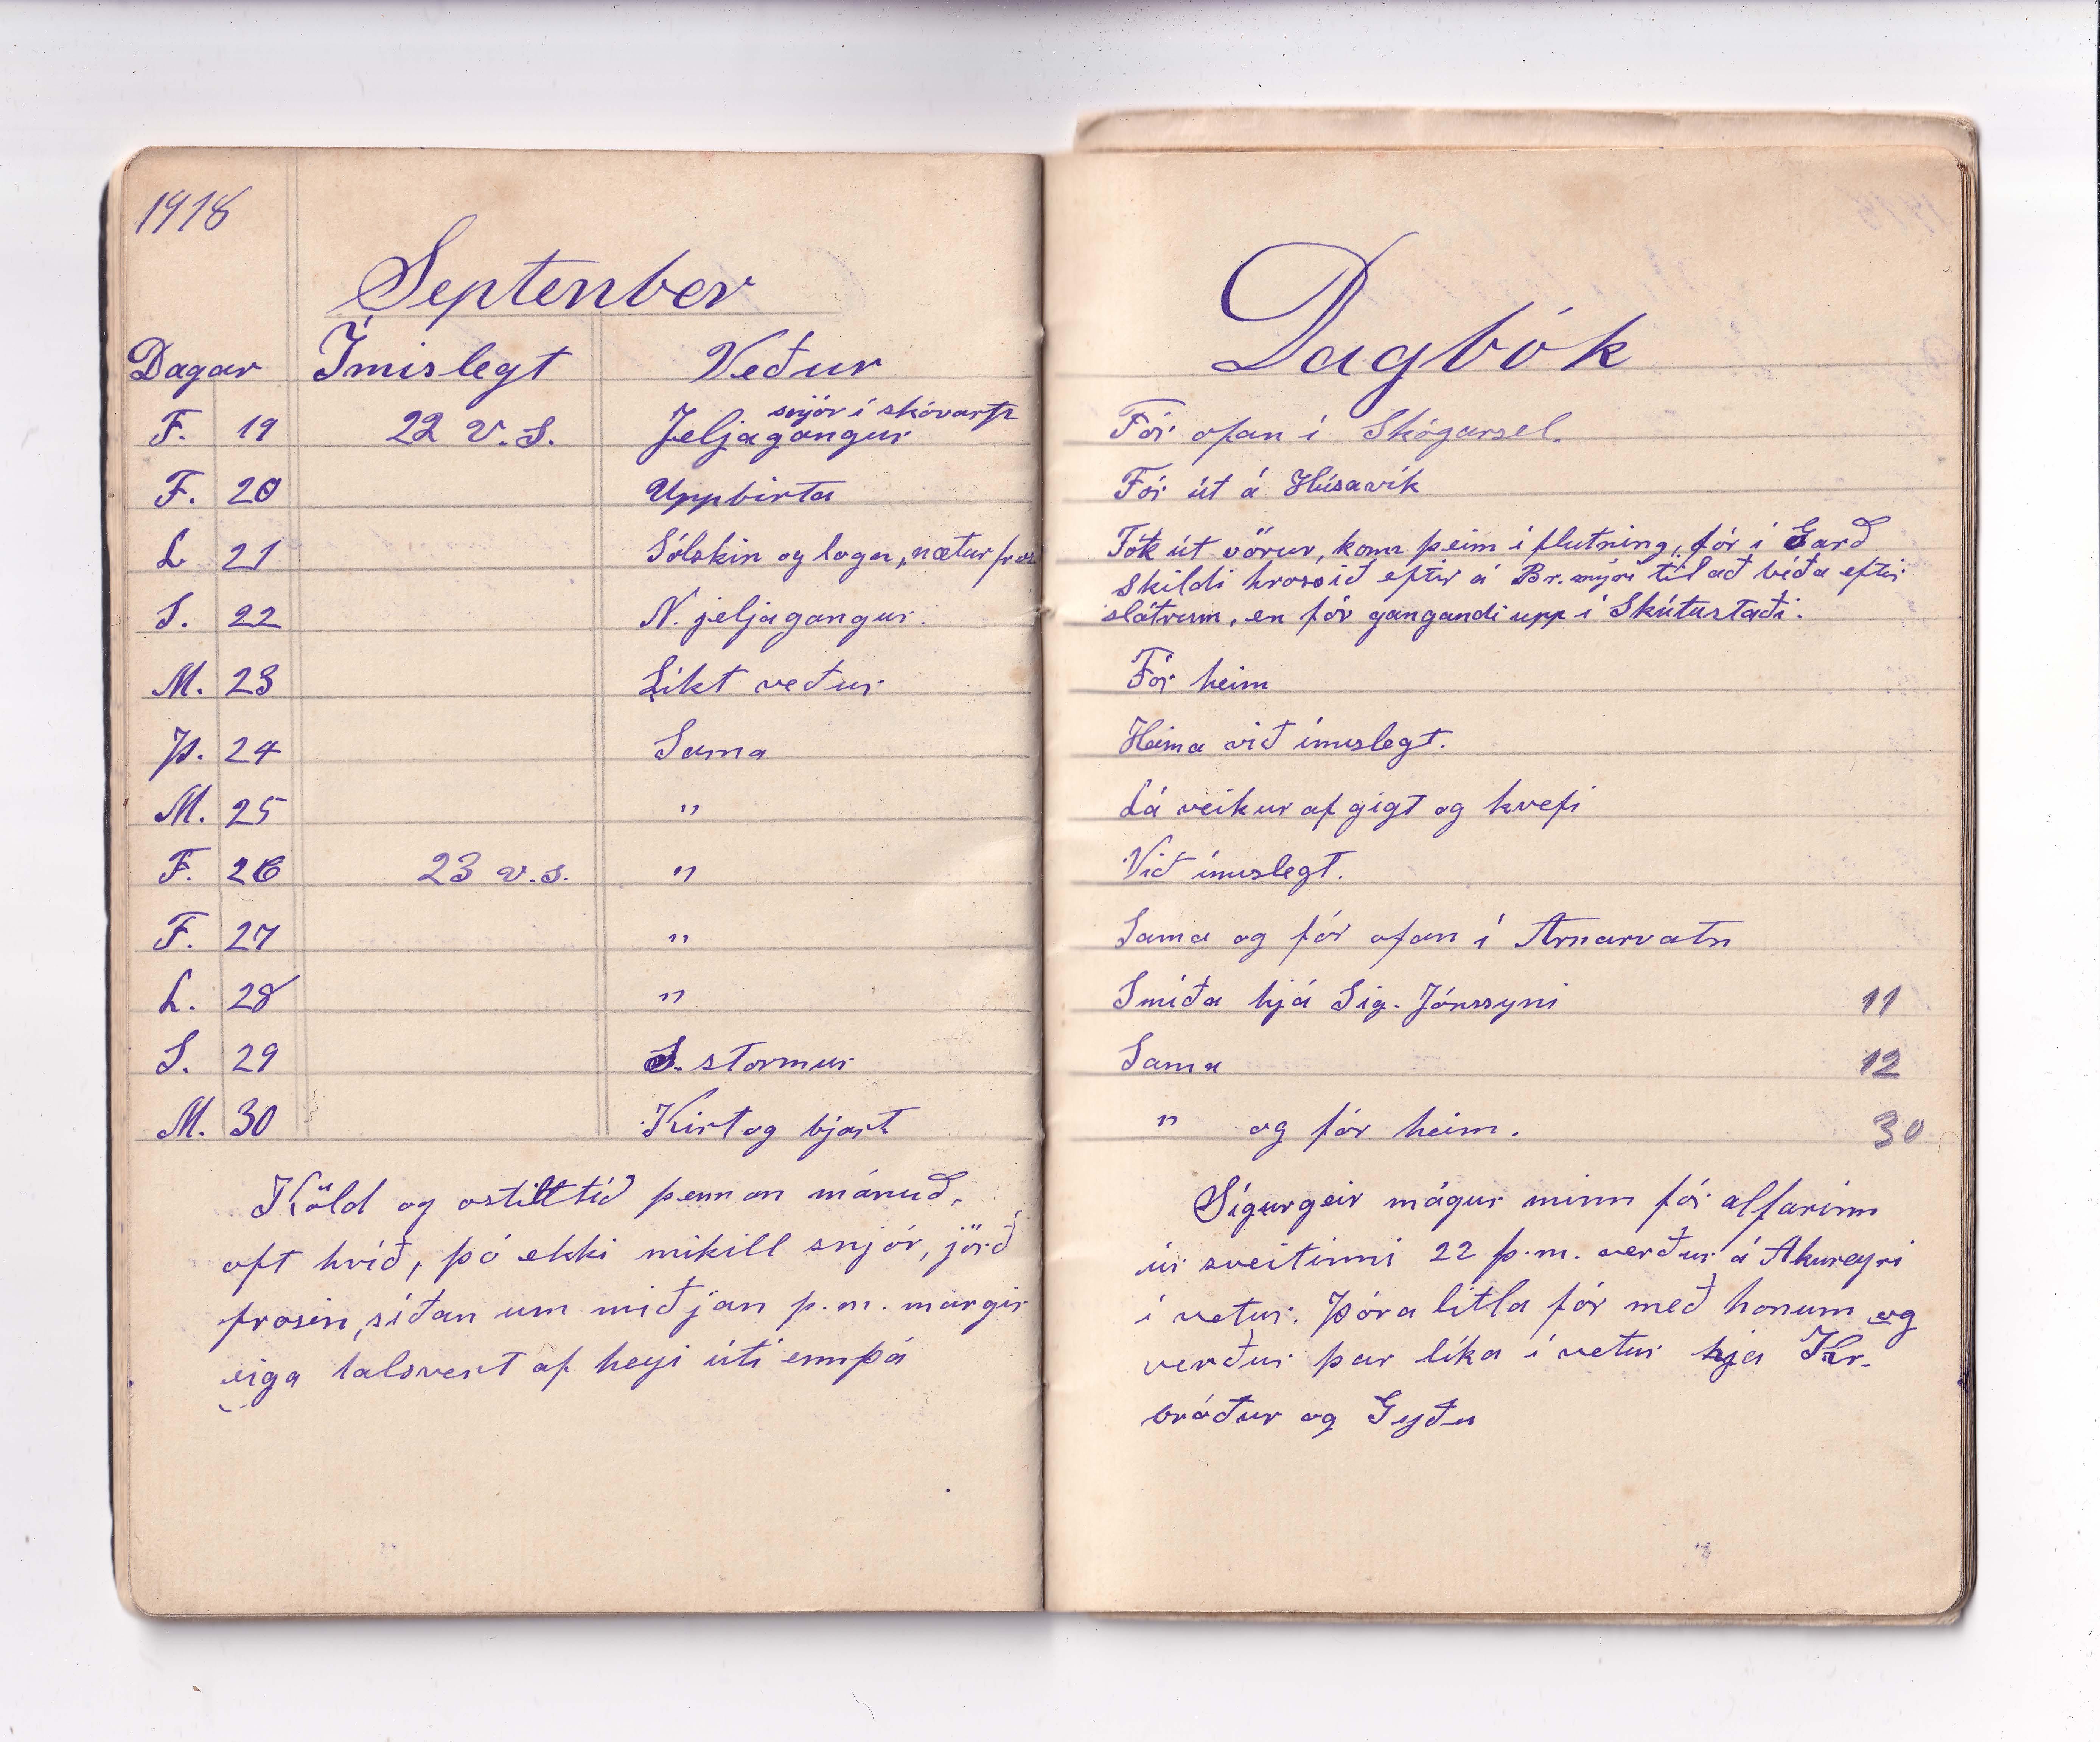 1918
September
Dagar Ímislegt Veður
snjór í skóvarp
F. 19 22 v.s. Jeljagangur
F. 20 Uppbirta
L 21 Sólskin og logn, nætur fros
S. 22 N. jeljagangur.
M. 23 Líkt veður
Þ. 24 Sama
M. 25 "
F. 26 23 v.s. "
F. 27 "
L. 28 "
S. 29 S. stormur
M. 30 Kirt og bjart
Köld og ostillt tíð þennan mánuð,
oft hríð, þó ekki mikill snjór, jörð
frosin, síðan um miðjan þ.m. margir
eiga talsvert af heyi úti ennþá
Dagbók
Fór ofan í Skógarsel.
Fór út á Húsavík
Tók út vörur, kom þeim í flutning, fór í Garð
skildi hrossið eftir á Br.mýri til að bíða eftir
slátrum, en fór gangandi upp í Skútustaði.
Fór heim
Heima við ímislegt.
Lá veikur af gigt og kvefi
Við ímislegt.
Sama og fór ofan í Arnarvatn
Smíða hjá Sig. Jónssyni 11
Sama 12
" og fór heim. 30
Sigurgeir mágur minn fór alfarinn
úr sveitinni 22 þ.m. verður á Akureyri
í vetur. Þóra litla fór með honum og
verður þar líka í vetur hja Kr.
bróður og Gyðu